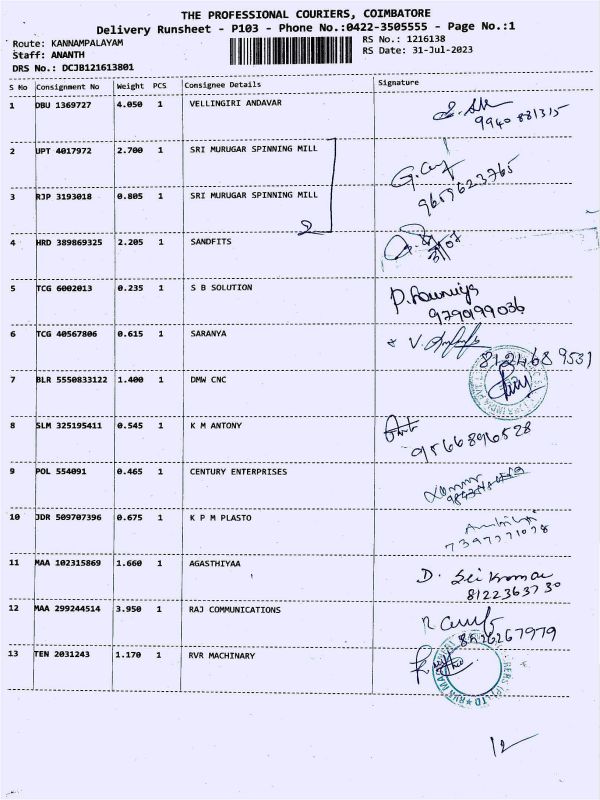 THE PROFESSIONAL COURIERS, COIMBATORE
Delivery Runsheet - P103 - Phone No.:0422-3505555 - Page No.:1
Route: KANNAMPALAYAM RS No.: 1216138
Staff: ANANTH RS Date: 31-Jul-2023
DRS No.: DCJB121613801
S No Consignment No Weight PCS Consignee Details Signature
1 DBU 1369727 4.050 1 VELLINGIRI ANDAVAR
9940881315
2 UPT 4017972 2.700 1 SRI MURUGAR SPINNING MILL
9659623765
3 RJP 3193018 0.805 1 SRI MURUGAR SPINNING MILL
2
4 HRD 389869325 2.205 1 SANDFITS
5 TCG 6002013 0.235 1 S B SOLUTION
9790199036
6 TCG 40567806 0.615 1 SARANYA
8124689531
7 BLR 5550833122 1.400 1 DMW CNC
8 SLM 325195411 0.545 1 K M ANTONY
9566896528
9 POL 554091 0.465 1 CENTURY ENTERPRISES
10 JDR 509707396 0.675 1 K P M PLASTO
11 MAA 102315869 1.660 1 AGASTHIYAA
8122363730
12 MAA 299244514 3.950 1 RAJ COMMUNICATIONS
8526267979
13 TEN 2031243 1.170 1 RVR MACHINARY
12